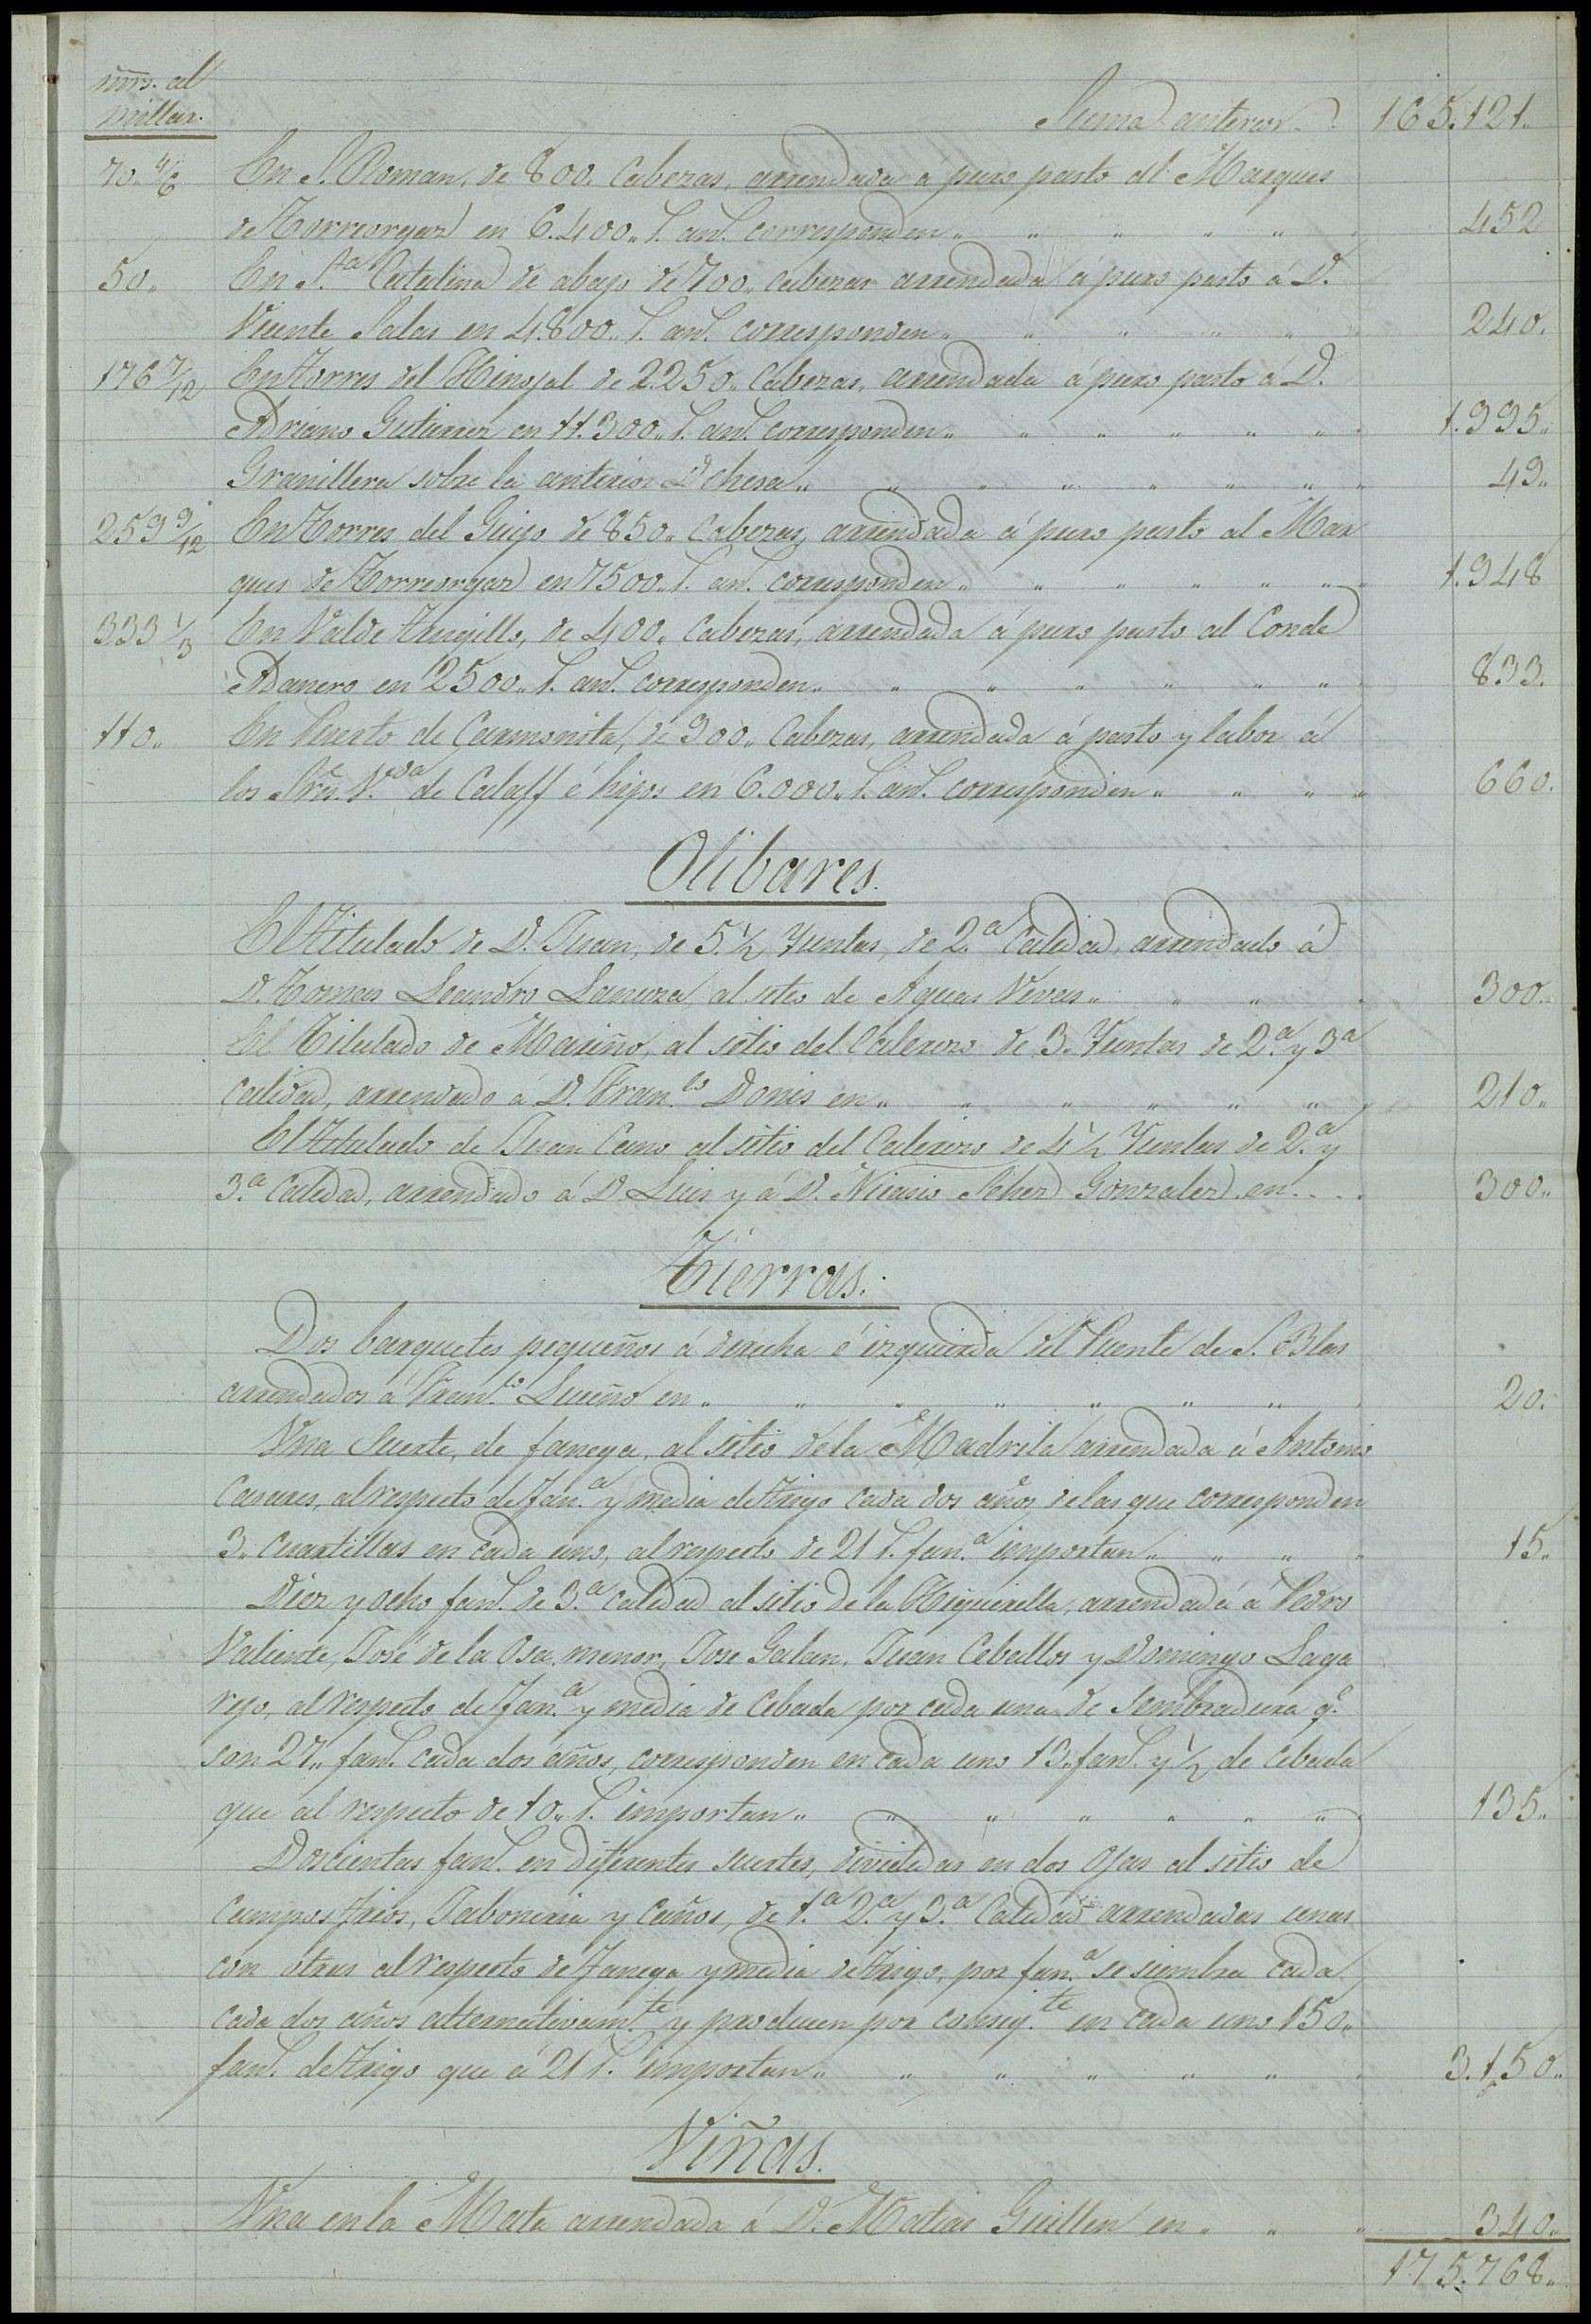 mrs. al
millar.
Suma anterior. 165.121.
70.4/6 En S. Roman, de 800. Cabezas, arrendada á puro pasto al Marques
de Torreorgaz en 6.400,, r.s an.s corresponden,, 452
50,, En S.ta Catalina de abajo de 700,, cabezas arrendada á puro pasto á D.
Vicente Salas en 4.800,, r.s an.s corresponden,, 240.
176 7/12 En Torres del Hinojal de 2.250,, Cabezas, arrendada á puro pasto á D.
Adriano Gutierrez en 11.300,, r.s an.s corresponden,, 1.995,,
Granillera sobre la anterior Dehesa,, 49,,
259 9/12 En Torres del Guijo de 850,, Cabezas, arrendada á puro pasto al Mar
ques de Torreorgaz en 7500,, r.s an.s corresponden,, 1.948
333 1/3 En Valde Trugillo, de 400,, Cabezas, arrendada á puro pasto al Conde
Adanero en 2500,, r.s an.s corresponden,, 833.
110,, En Puerto de Carmonita, de 900,, Cabezas, arrendada á pasto y labor á
los Sres. V.da de Calaff é hijos en 6.000,, r.s an.s corresponden,, 660.
Olibares.
El Titulado de D. Juan, de 5.1/2 Yuntas, de 2.a Calidad, arrendado á
D. Tomas Leandro Lanuza al sitio de Aguas Vivas,, 300,,
El Titulado de Mariño, al sitio del Calerizo de 3. Yuntas de 2.a y 3.a
calidad, arrendado á D. Fran.co Donis en,, 210,,
El Titulado de Juan Cano al sitio del Calerizo de 4 1/2 Yuntas de 2.a y
3.a Calidad, arrendado á D. Luis y á D. Nicasio Gonzalez en.... 300,,
Tierras.
Dos barquetes pequeños á derecha é izquierda del Puente de S. Blas
arrendados á Fran.co Luceño en,, 20.
Una Suerte, de fanega, al sitio de la Madrila arrendada á Antonio
Casares, al respecto de fan.a y media de Trigo cada dos años de las que corresponden
3,, cuartillas en cada uno, al respecto de 21 r.s fan.a importan,, 15,,
Diez y ocho fan.s de 3.a calidad al sitio de la Higuerilla, arrendada á Pedro
Valiente, José de la Osa menor, Jose Galan, Juan Ceballos y Domingo Laga
rejo, al respecto de fan.a y media de Cebada por cada una de Sembradura q.e
son 27,, fan.s cada dos años, corresponden en cada uno 13,, fan.s y 1/2 de Cebada
que al respecto de 10,, r.s importan,, 135,,
Doscientas fan.s en diferentes suertes, divididas en dos Ojas al sitio de
Campos frios, Jaboneria y Caños, de 1.a 2.a y 3.a Calidad arrendadas unas
con otras al respecto de fanega y media de Trigo, por fan.a se siembra cada
cada dos años alternativam.te y producen por consig.te en cada uno 150,,
fan.s de Trigo que á 21 r.s importan,, 3.150,,
Viñas.
Una en la Mata arrendada á D. Matias Guillen en,, 340,,
175.768,,